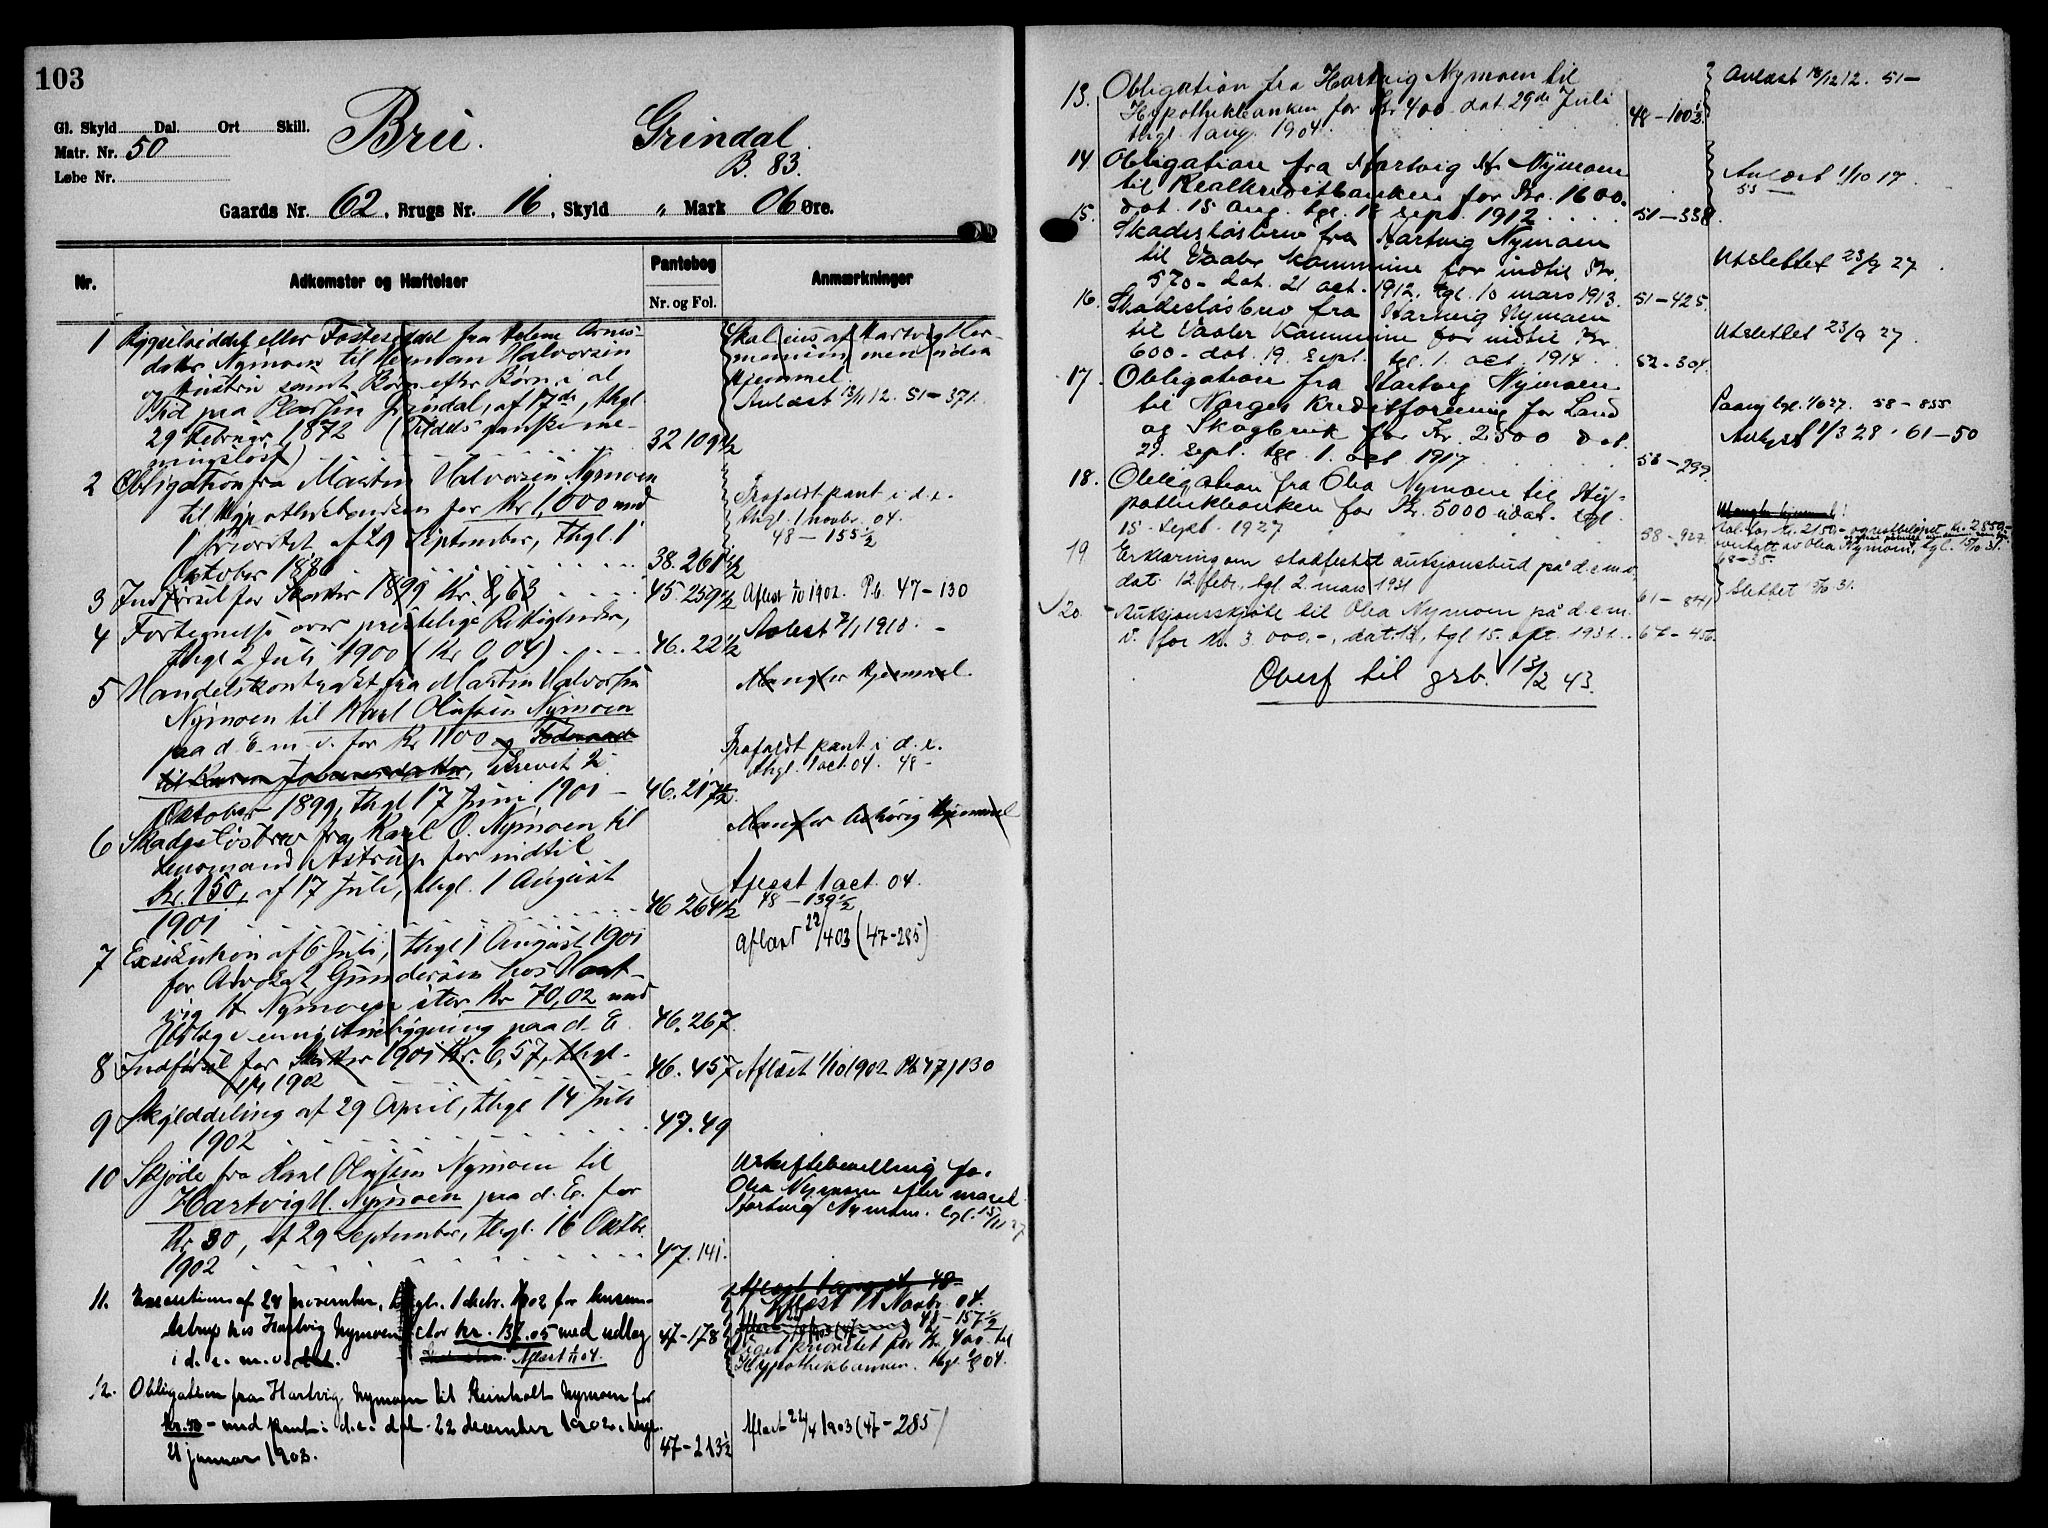 103
Gl. Skyld Dal. Ort Skill.
Matr. Nr. 50
Løbe Nr.
Bru. Grindal.
B. 83.
Gaards Nr. 62, Brugs Nr. 16, Skyld " Mark 06 Øre.
Nr. Adkomster og Hæftelser Pantebog Anmærkninger
Nr. og Fol.
1 Bygselseddel eller Festeseddel fra
datter Nymoen til Herman Halvorsen
og Hustru samt Børn efter Børn i al
Tid paa Pladsen Grindal, af 17de, thgl
29 Februar 1872 (Tildels ganske me-
ningsløst) 32 109 1/2
Skal eies af Hartvig Her-
mansen men uden
Hjemmel.
Avlæst 13/11 12. 51-371.
2 Obligation fra Martin Halvorsen Nymoen
til Hypothekbanken for Kr 1,000 med
1 Prioritet af 29 September, thgl 1
Oktober 1886 38. 261 1/2
Frafaldt pant i d. e.
thgl. 1 novbr. 04.
48-155 1/2
3 Indførsel for Skatter 1899 Kr. 8,63 45 259 1/2 Aflæst 1/10 1902. Pb. 47-130
4 Fortegnelse over prestelige Rettigheder,
thgl 2 Juli 1900 (Kr 0,04) 46. 22 1/2
Avlest 7/1 1910.
5 Handelskontrakt fra Martin Halvorsen
Nymoen til Karl Olafsen Nymoen
paa d. E. m. v. for Kr 1100 og Føderaad
til Karen Johannesdatter, skrevet 2
Oktober 1899, thgl 17 Juni 1901 46. 217 1/2
Mangler Hjemmel.
Frafaldt pant i d. e.
thgl. 1 oct. 04. 48-
6 Skadesløsbrev fra Karl O. Nymoen til
Lensmand Astrup for indtil
Kr. 150, af 17 Juli, thgl. 1 August
1901 46 264 1/2
Mangler Hjemmel
Aflæst 1 oct. 04.
48-139 1/2
7 Exekution af 6 Juli, thgl 1 August 1901
for Advokat Gundersen hos Hart-
vig H. Nymoen stor Kr 70,02 med
Udlæg i en ny Husbygning paa d. E. 46. 267
Aflæst 22/4 03 (47-285)
8 Indførsel for Skatter 1901 Kr. 6,57, thgl.
1902 46. 457 Aflæst 1/10 1902 Pb 47, 130
9 Skylddeling af 29 April, thgl 14 Juli
1902 47. 49
10 Skjøde fra Karl Olafsen Nymoen til
Hartvig H. Nymoen paa d. E. for
Kr. 30, af 29 September, thgl. 16 Oktbr.
1902 47. 141.
Uskiftebevilling for
Olea Nymoen efter mand
Hartvig Nymoen. tgl. 15/11 27
11. Execution af 24 november, thgl. 1 debr. 1902 for lensm.
Astrup hos Hartvig Nymoen stor kr. 137.05 med udlæg
i d. e. m. v. Aflæst 1/11 04. 47-178 1/2
Aflæst 1 48-
Aflæst 11 Novbr 04.
48-157 1/2
Veget prioritet for Kr. 400 til
Hypothekbanken. thgl. 1/8 04.
12. Obligation fra Hartvig Nymoen til Reinholt Nymoen for
med pant i d. e. dat. 22 december 1902, thgl.
21 januar 1903. 47-213 1/2
Aflæst 22/4 1903 (47-285)
13. Obligation fra Hartvig Nymoen til
Hypothekbanken for Kr 400 dat. 29de Juli
thgl. 1 aug. 1904. 48-100 1/2
Avlæst 18/12 12. 51-
14. Obligation fra Hartvig H. Nymoen
til Realkreditbanken for Kr. 1600.
dat. 15 aug. tgl. 1 sept. 1912 51-338.
Avlæst 1/10 17.
53-
15. Skadesløsbrev fra Hartvig Nymoen
til Vaaler kommune for indtil Kr.
570- dat. 21 oct. 1912, tgl. 10 mars 1913. 51-425.
Utslettet 23/9 27.
16. Skadesløsbrev fra Hartvig Nymoen
til Vaaler Kommune for indtil Kr.
600- dat. 19. sept. tgl. 1. oct. 1914. 52-304.
Utslettet 23/9 27.
17. Obligation fra Hartvig Nymoen
til Norges Kreditforening for Land
og Skogbruk for Kr. 2500 dat.
29. sept. tgl. 1. oct. 1917 53-299.
58-855
Avlyst 1/3 28. 61-50
18. Obligation fra Olea Nymoen til Hy-
pothekbanken for Kr. 5000 udat. tgl.
15. sept. 1927 58-927.
overtatt av Olea Nymoen, tgl. 15/10 31.
19 Erklæring om stadfestet auksjonsbud på d. e. m. v.
dat. 12 febr., tgl 2. mars 1931 61-841
Slettet 31.
20 Auksjonsskjøte til Olea Nymoen på d. e. m.
v. for kr. 3.000.-, dat. 14, tgl 15. 1931. 67-456
Overf til grb. 13/2 43.